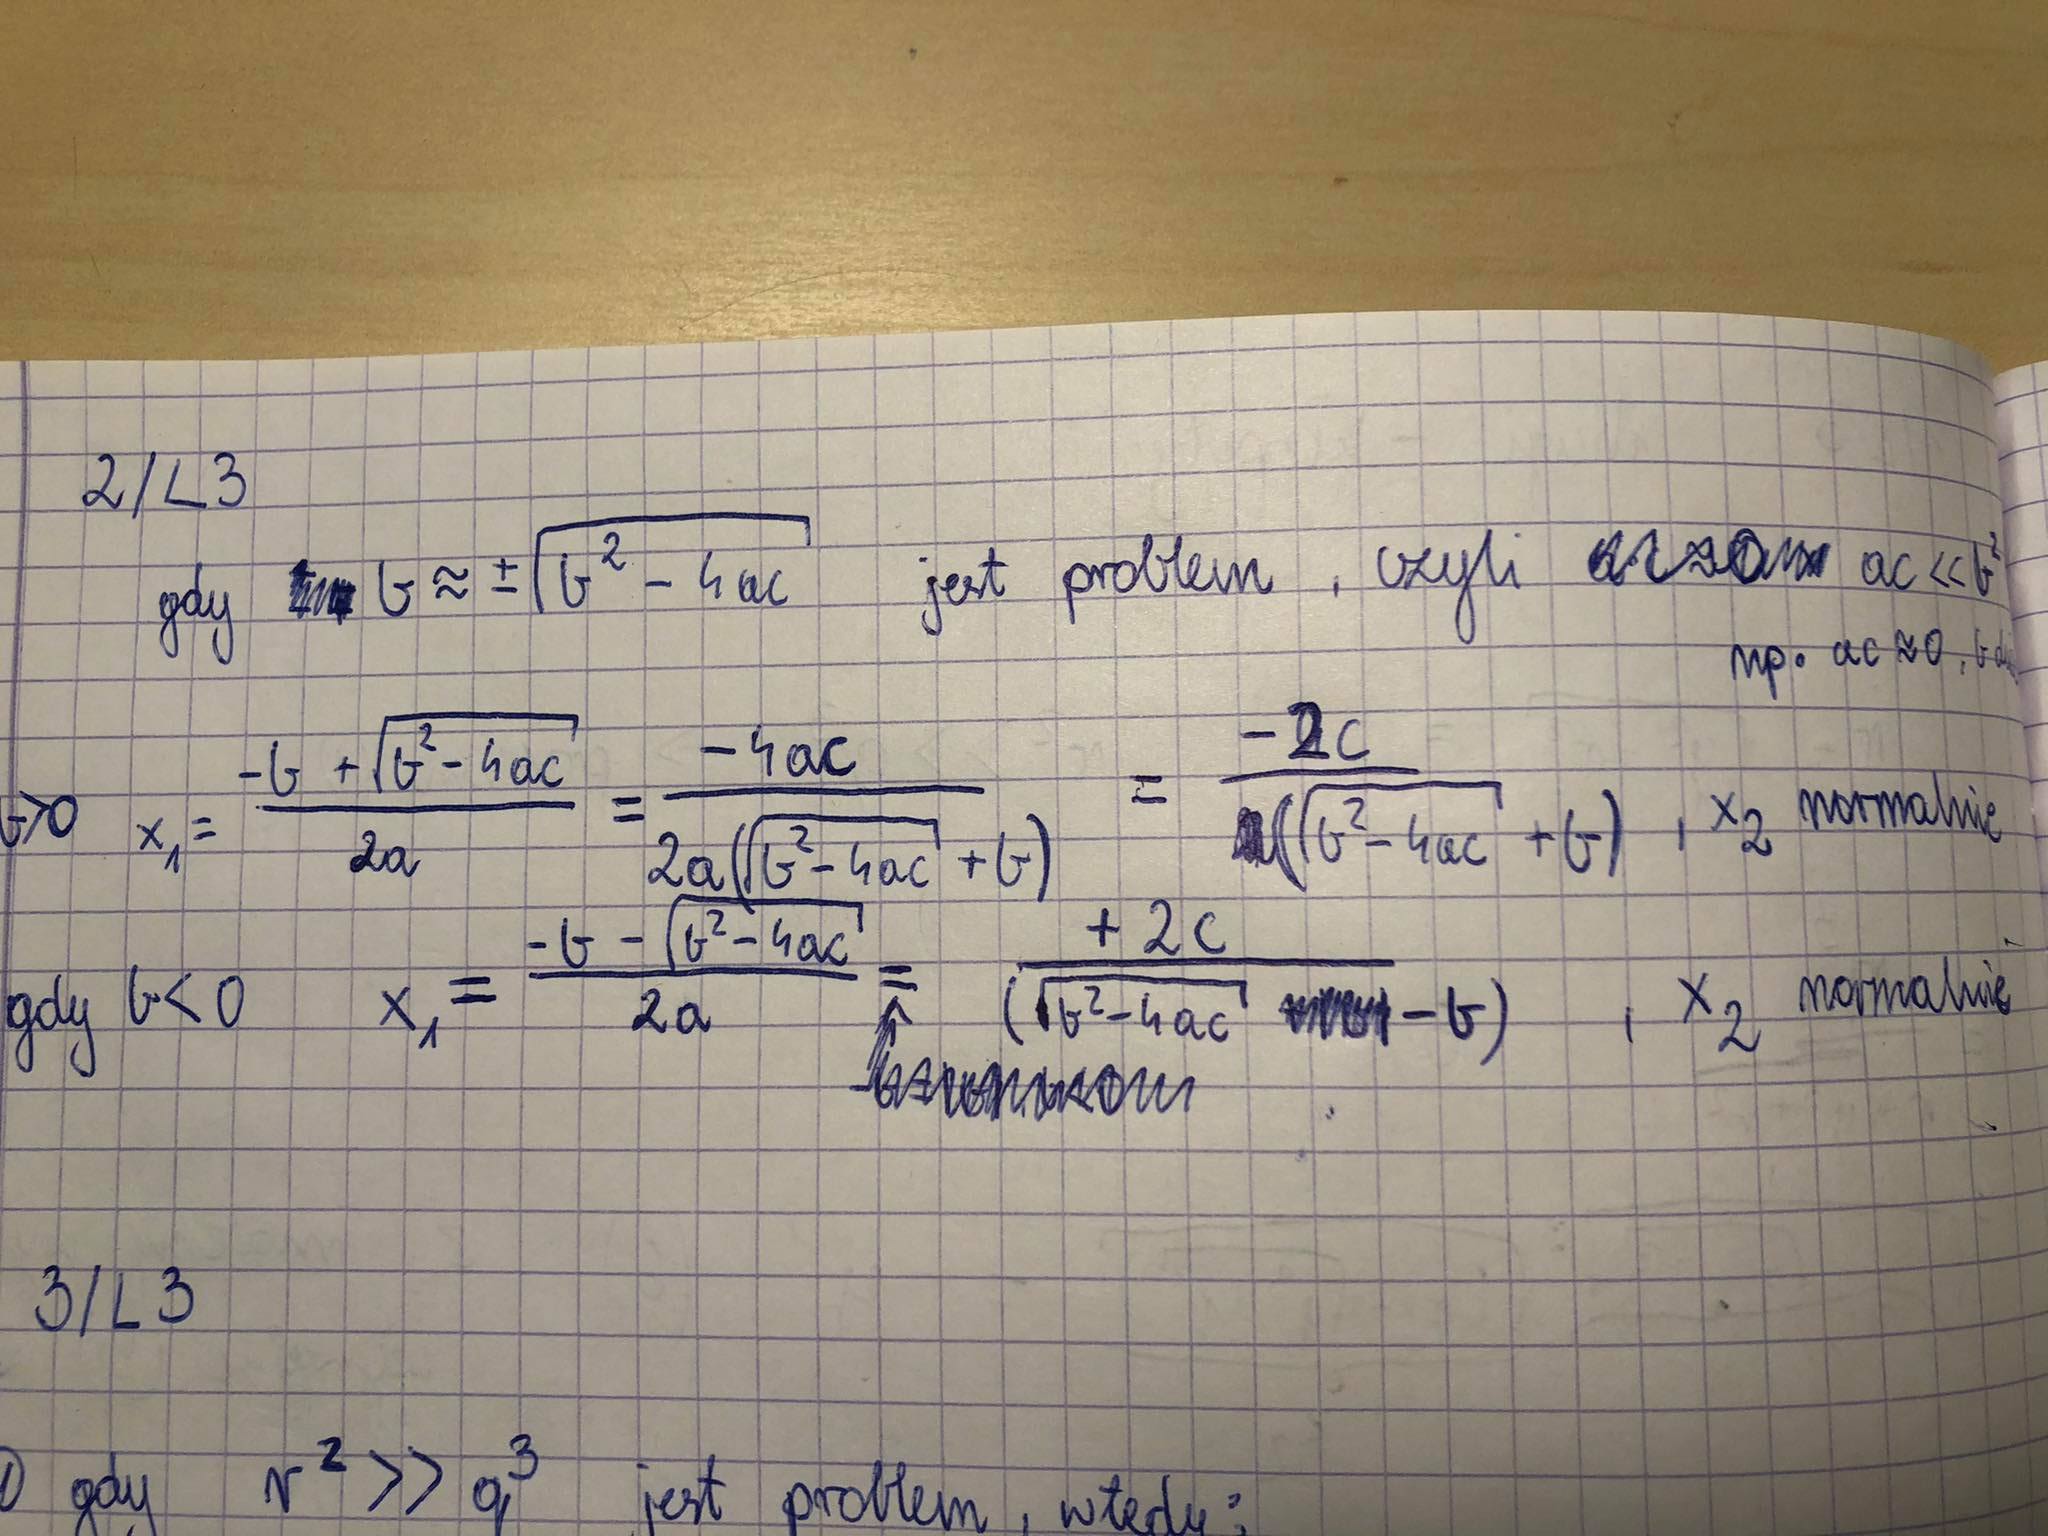 2/L3
gdy b ≈ ±√(b² - 4ac) jest problem, czyli ac << b²
np. ac ≈ 0, b
b>0 x₁ = (-b + √(b² - 4ac)) / 2a = -4ac / 2a(√(b² - 4ac) + b) = -2c / (√(b² - 4ac) + b), x₂ normalnie
gdy b < 0 x₁ = (-b - √(b² - 4ac)) / 2a = +2c / (√(b² - 4ac) - b), x₂ normalnie
3/L3
gdy r² >> q³ jest problem, wtedy: